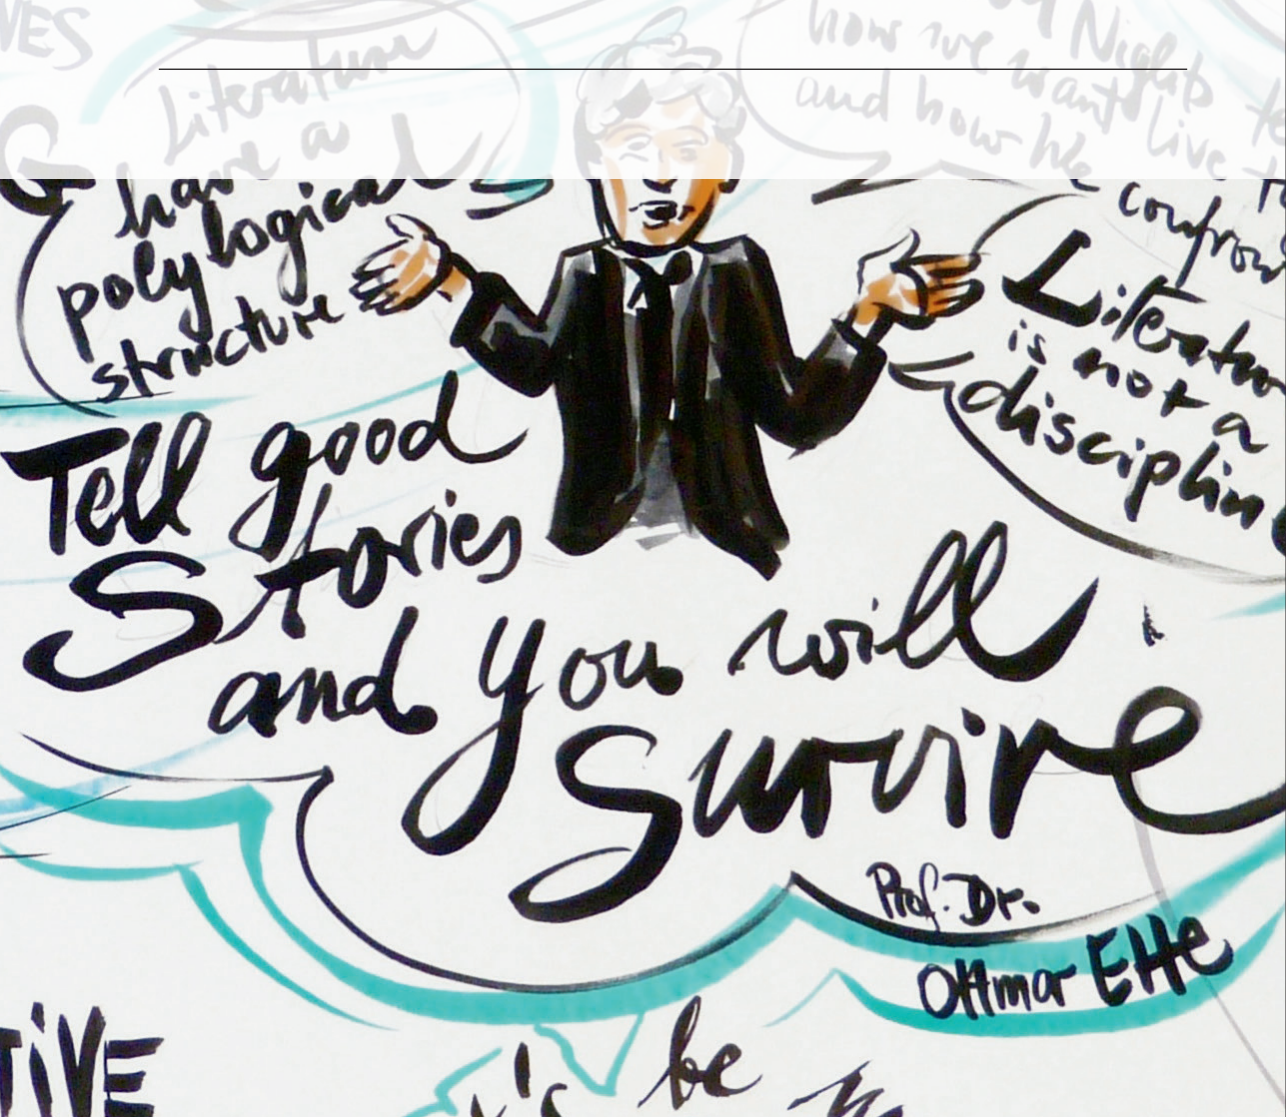 VES
G
Literature
have a
polylogical
structure
how we want
and how
Nights
live
Literatur
is not a
disciplin
Tell good
Stories
and you will
Survive
Prof. Dr.
Ottmar Ette
TIVE
be